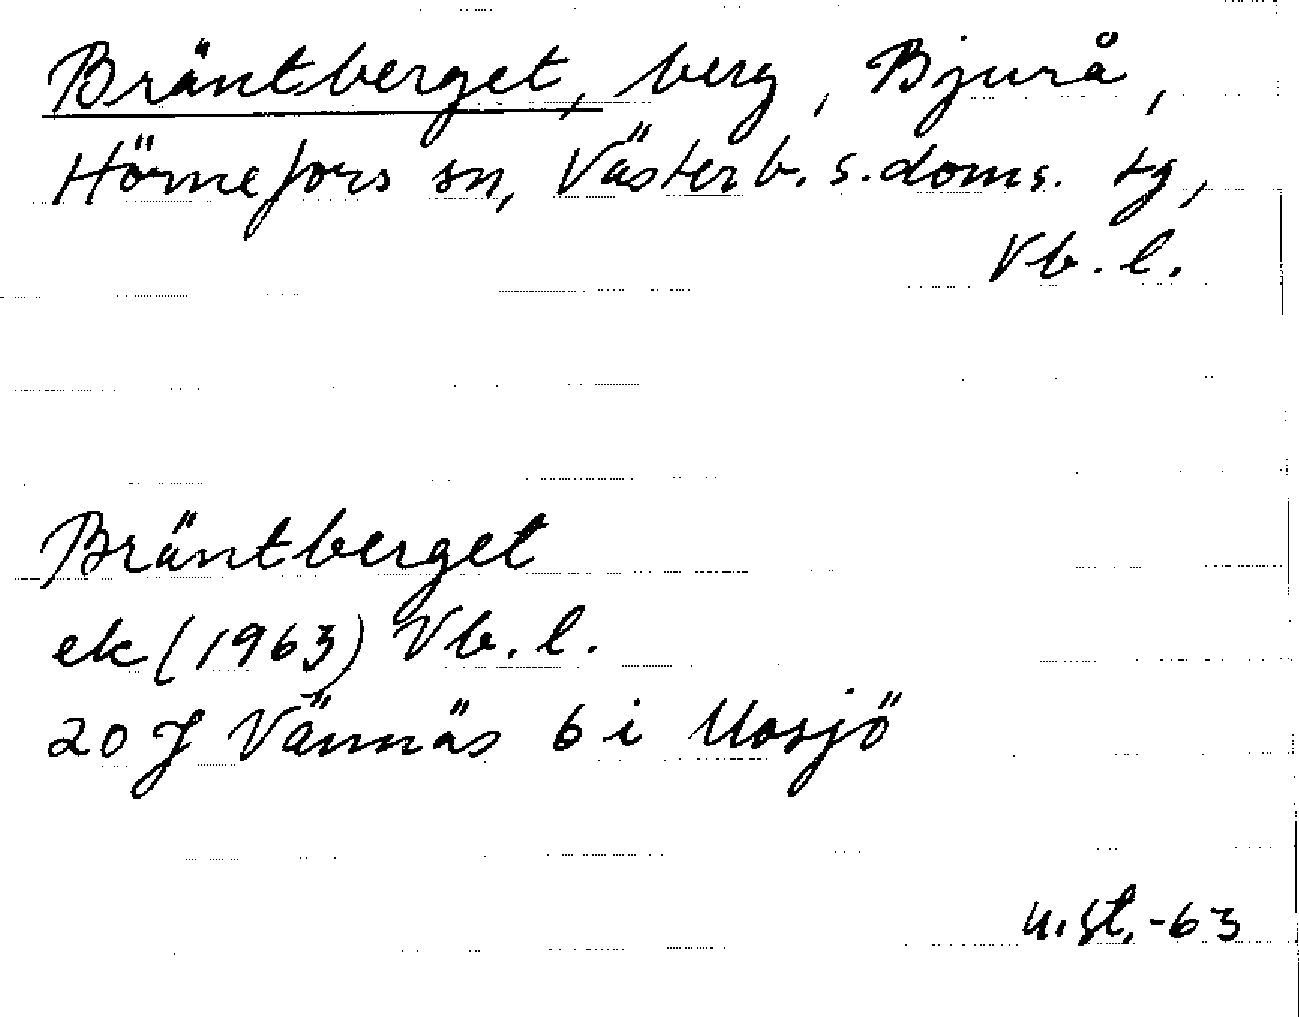 Bräntberget, berg, Bjurå,
Hörnefors sn, Västerb. s. doms. tg,
Vb. l.
Bräntberget
ek (1963) Vb. l.
20 J Vännäs 6 i Mosjö
u. St. -63